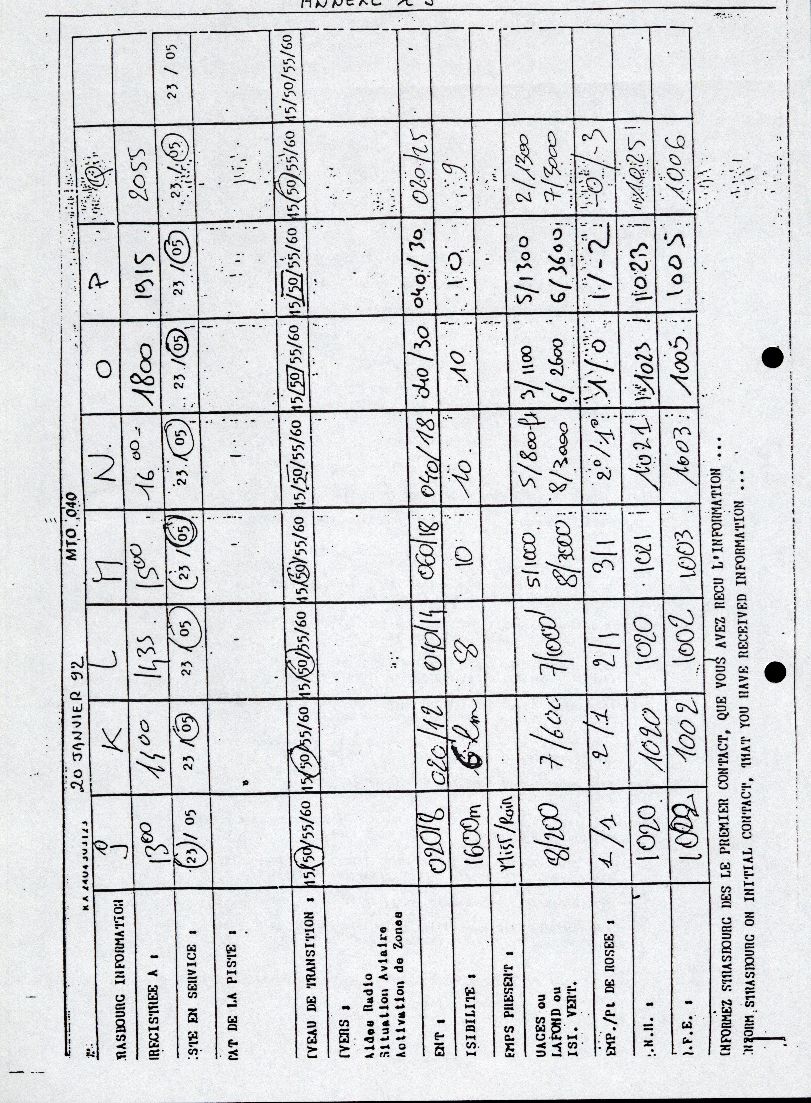 ANNEXE
20 JANVIER 92 MTO 040
RASBOURG INFORMATION J K L M N. O P Q
REGISTREE A : 1300 1400 1435 1500 1600 1800 1915 2055
STE EN SERVICE : 23 / 05 23 / 05 23 / 05 23 / 05 23 / 05 23 / 05 23 / 05 23 / 05 23 / 05
TAT DE LA PISTE :
VEAU DE TRANSITION : 15/50/55/60 15/50/55/60 15/50/55/60 15/50/55/60 15/50/55/60 15/50/55/60 15/50/55/60 15/50/55/60 15/50/55/60
VERS :
Aides Radio
Situation Aviaire
Activation de Zones
ENT : 020/8 020/12 040/14 060/18 040/18 040/30 040/30 020/25
ISIBILITE : 1600m 6km 8 10 10. 10 10 9
EMPS PRESENT : Mist/Rain
UAGES ou
LAFOND ou
ISI. VERT.
8/200 7/600 7/1000 5/1000 5/800ft 3/1100 5/1300 2/1300
8/3000 8/3000 6/2600 6/3600 7/3000
EMP./Pt DE ROSEE : 1/1 2/1 2/1 3/1 2°/1° 1/0 1/-2 -0/-3
.N.H. : 1020 1020 1020 1021 1021 1023 1023 1025
.F.E. : 1002 1002 1002 1003 1003 1005 1005 1006
NFORMEZ STRASBOURG DES LE PREMIER CONTACT, QUE VOUS AVEZ RECU L'INFORMATION ...
NFORM STRASBOURG ON INITIAL CONTACT, THAT YOU HAVE RECEIVED INFORMATION ...